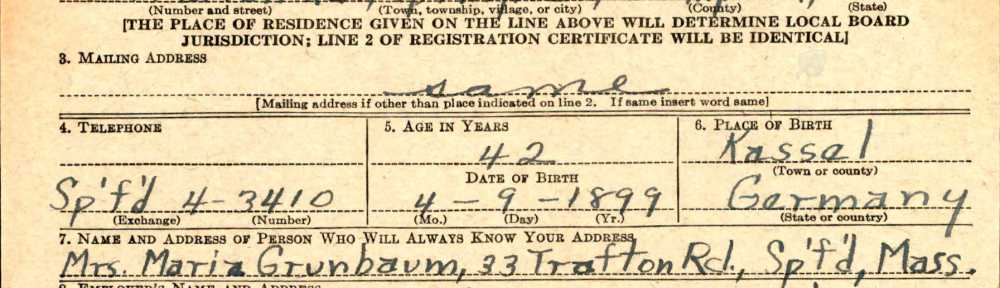 (Number and street) (Town, township, village, or city) (County) (State)
[THE PLACE OF RESIDENCE GIVEN ON THE LINE ABOVE WILL DETERMINE LOCAL BOARD
JURISDICTION; LINE 2 OF REGISTRATION CERTIFICATE WILL BE IDENTICAL]
3. MAILING ADDRESS
same
[Mailing address if other than place indicated on line 2. If same insert word same]
4. TELEPHONE 5. AGE IN YEARS 6. PLACE OF BIRTH
42 Kassel
DATE OF BIRTH (Town or county)
Sp'f'd 4-3410 4 - 9 - 1899 Germany
(Exchange) (Number) (Mo.) (Day) (Yr.) (State or country)
7. NAME AND ADDRESS OF PERSON WHO WILL ALWAYS KNOW YOUR ADDRESS
Mrs. Maria Grunbaum, 33 Trafton Rd., Sp'f'd, Mass.